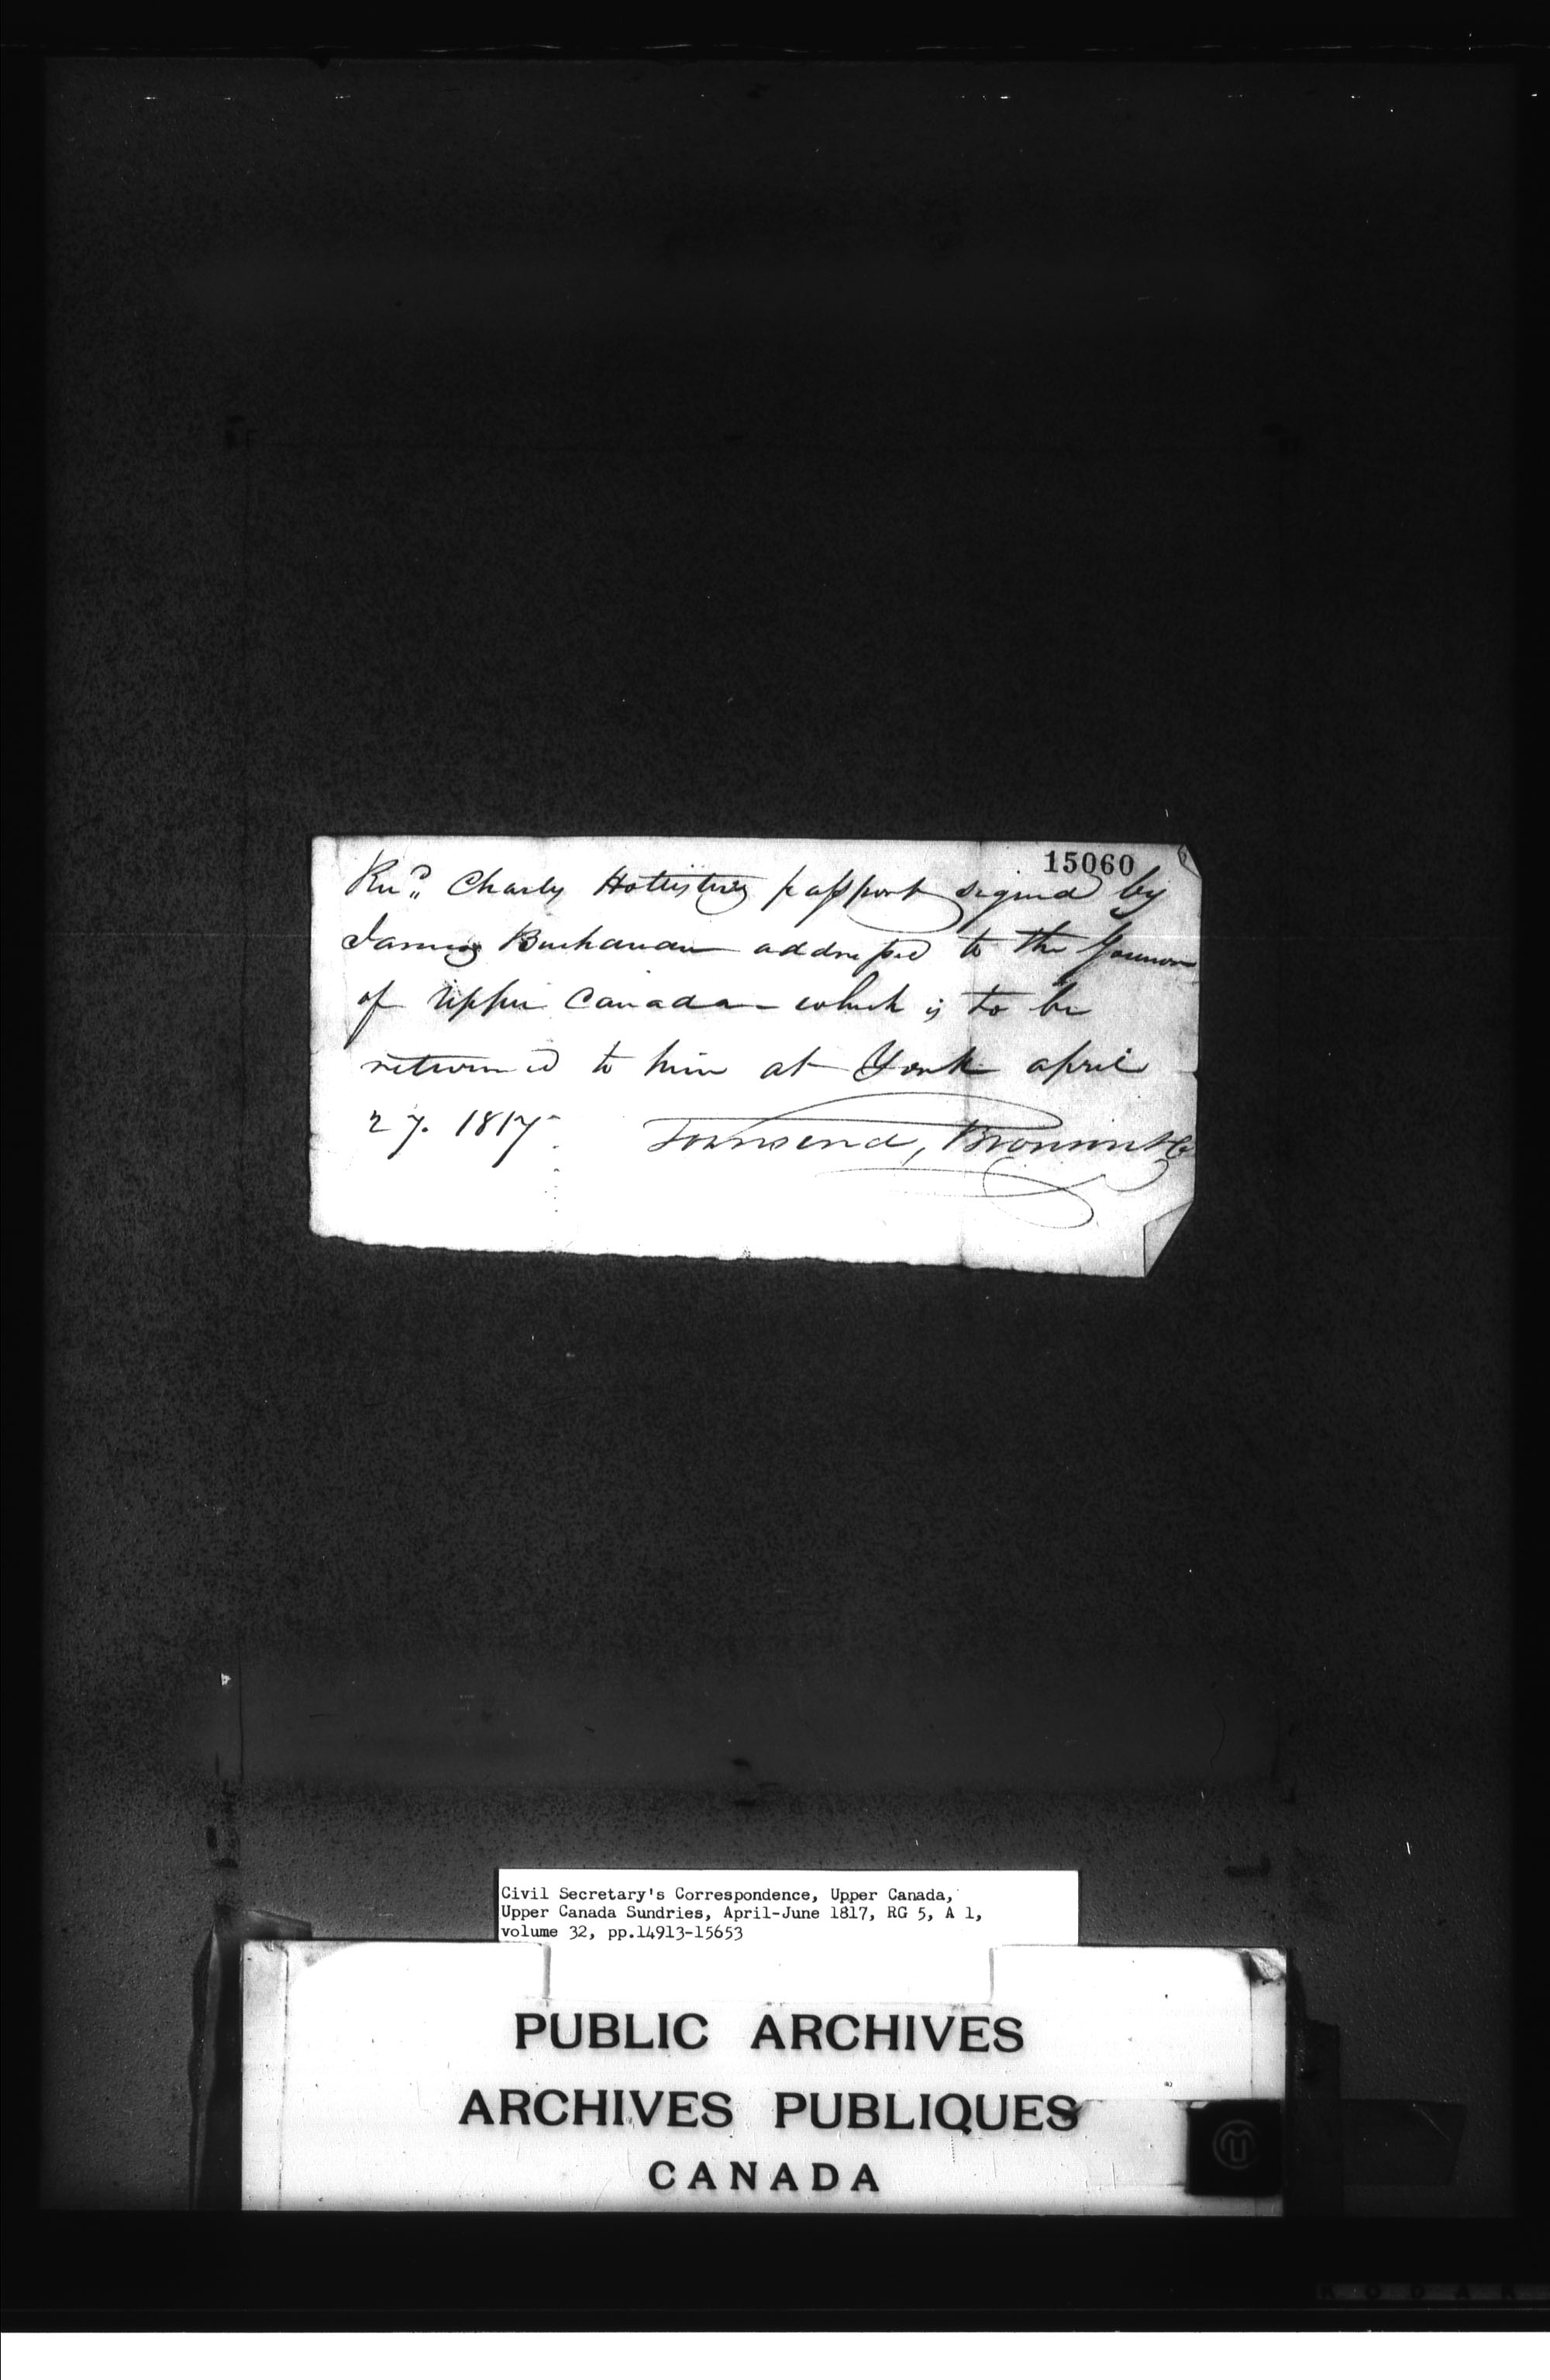 15060
Recd. Charles Hollisters passport signed by
James Buchanan addressed to the Governor
of Upper Canada - which is to be
returned to him at York april
27. 1817. Townsend, Bronson & Co
Civil Secretary's Correspondence, Upper Canada,
Upper Canada Sundries, April-June 1817, RG 5, A 1,
volume 32, pp.14913-15653
PUBLIC ARCHIVES
ARCHIVES PUBLIQUES
CANADA